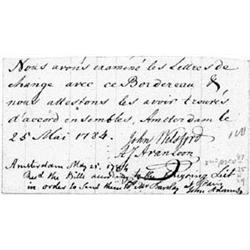 Nous avons examiné les Lettres de
change avec ce Bordereau &
nous attestons les avoir trouvés
d'accord ensembles, Amsterdam le
25 Mai 1784.
John
Amsterdam May 25. 1784
Recd the Bills according to the foregoing List
in order to send them to Mr at Paris
John Adams